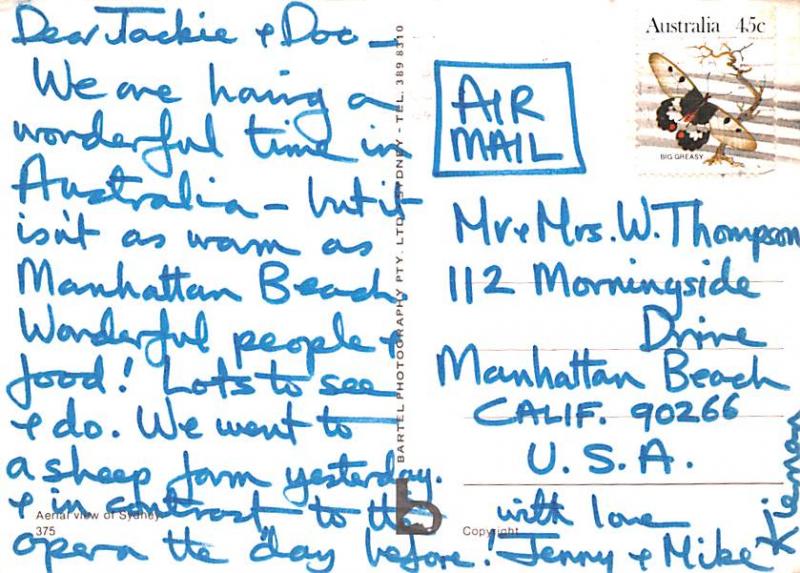 Dear Jackie & Doc —
We are having a
wonderful time in
Australia — but it
isn't as warm as
Manhattan Beach.
Wonderful people &
food! Lots to see
& do. We went to
a sheep farm yesterday.
& in contrast to the
opera the day before!
with love
Jenny & Mike
Kiernan
Aerial view of Sydney.
375
BARTEL PHOTOGRAPHY PTY. LTD. SYDNEY - TEL. 389 8310
b
Copyright
AIR
MAIL
Australia 45c
BIG GREASY
Mr & Mrs. W. Thompson
112 Morningside
Drive
Manhattan Beach
CALIF. 90266
U.S.A.